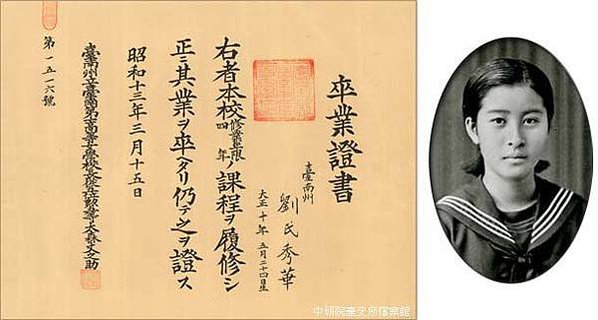 卒業證書
臺南州
劉氏秀華
大正十年五月二十四日生
右者本校修業年限四年ノ課程ヲ履修シ
正ニ其業ヲ卒ヘタリ仍テ之ヲ證ス
昭和十三年三月十五日
第一五一六號
中研院臺史所檔案館